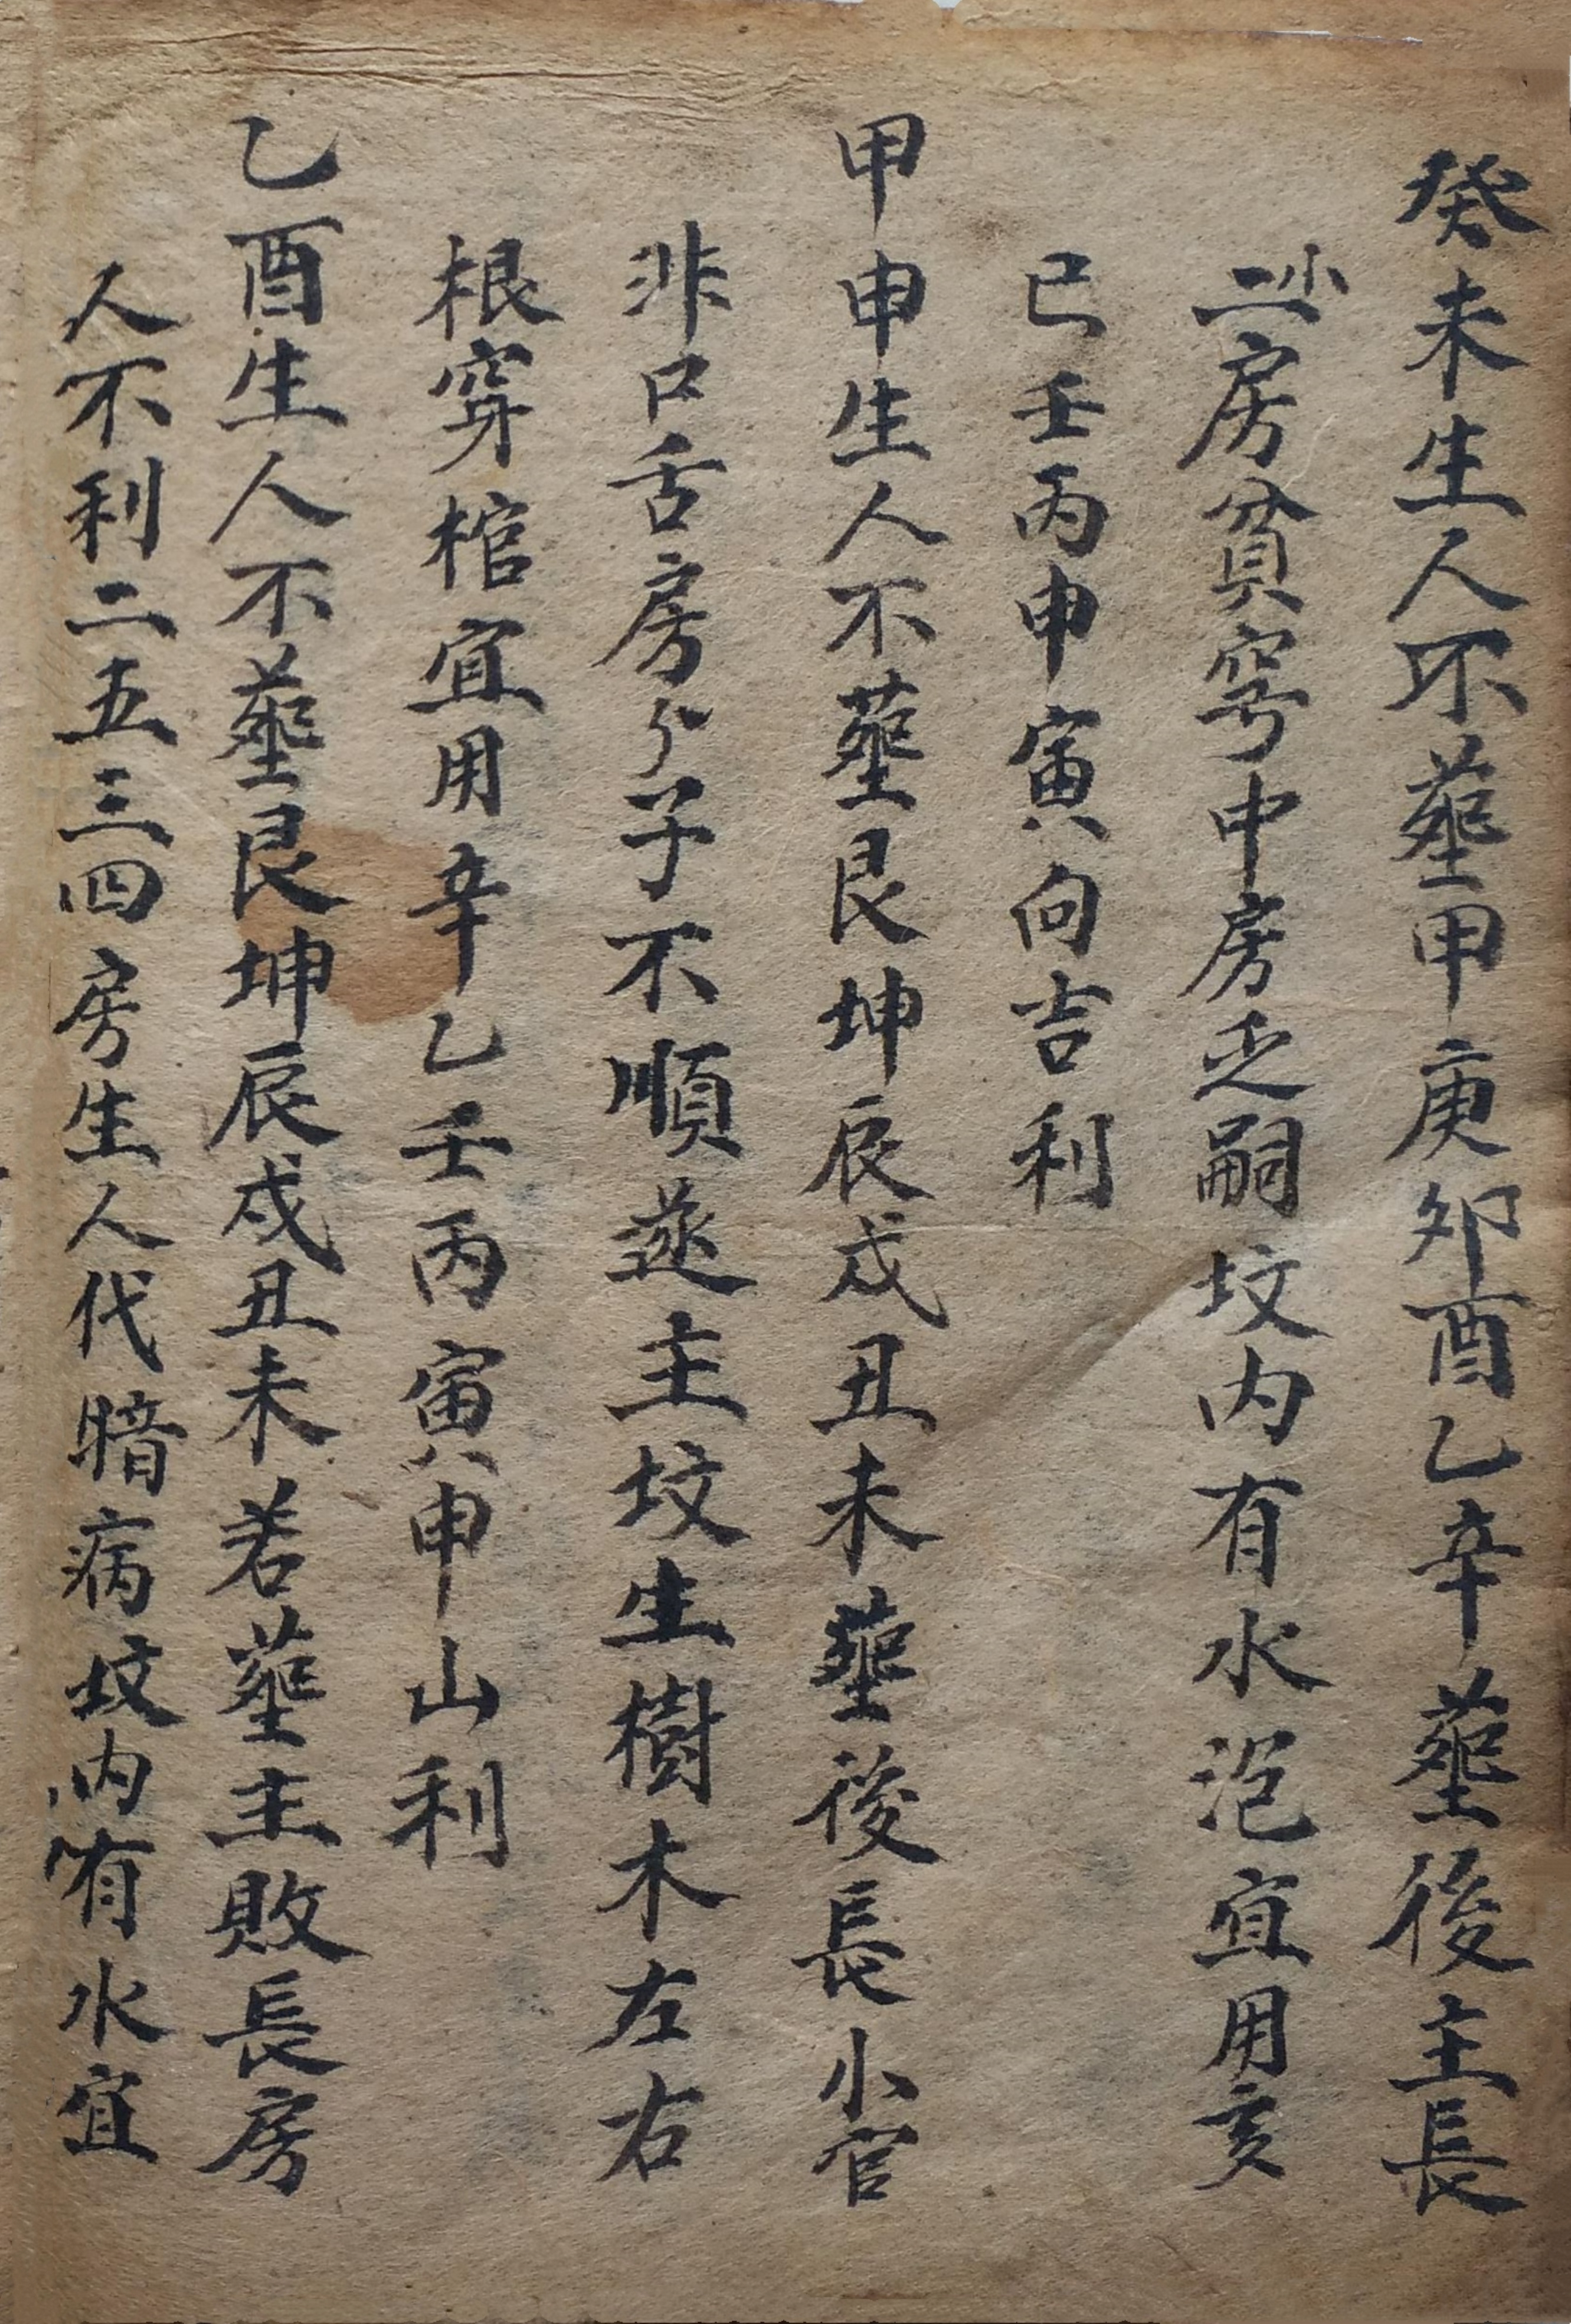 癸未生人不塟甲庚夘酉乙辛塟後主長
小二房貧穷中房乏嗣坟内有水泡宜用亥
巳壬丙申寅向吉利
甲申生人不塟艮坤辰戌丑未塟後長小官
非口舌房分子不順遂主坟生樹木左右
根穿棺宜用辛乙壬丙寅申山利
乙酉生人不塟艮坤辰戌丑未若塟主敗長房
人不利二五三四房生人代暗病坟内有水宜